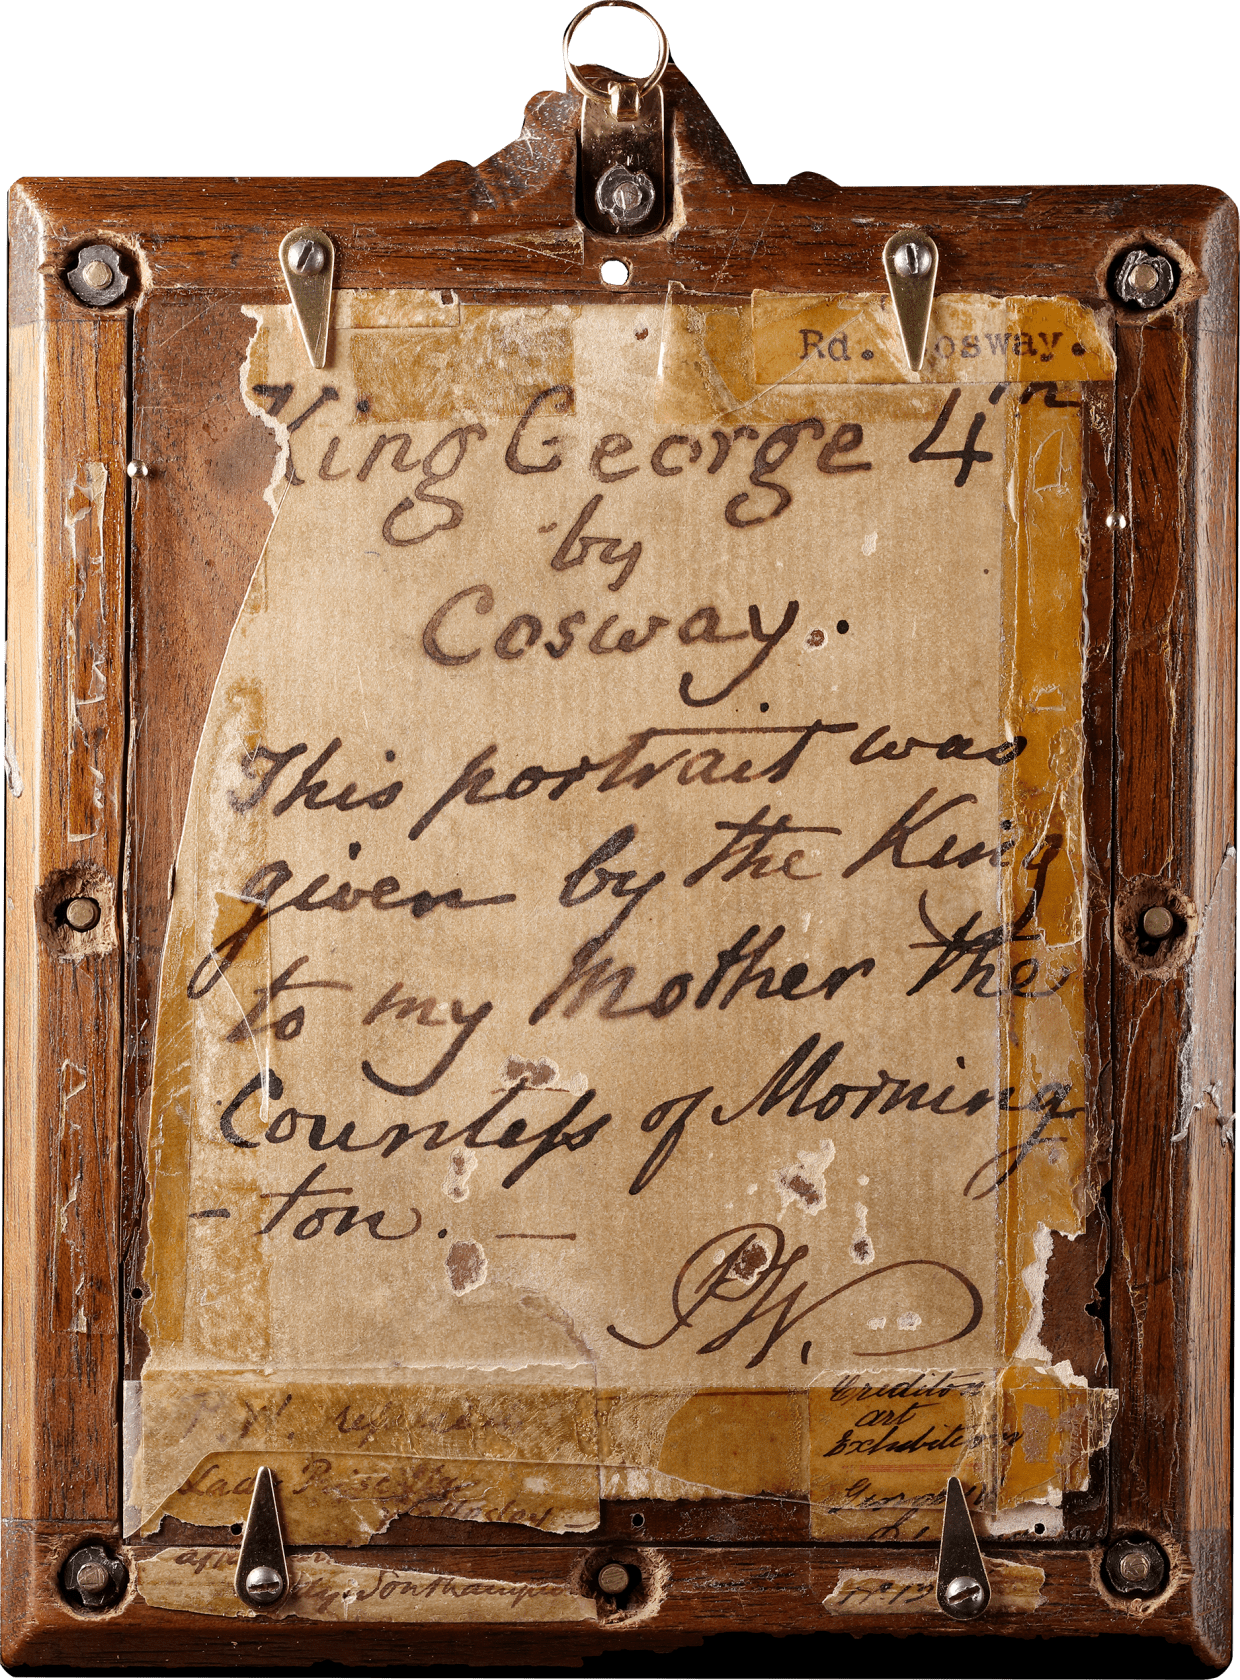 Rd. Cosway.
King George 4th
by
Cosway.
This portrait was
given by the King
to my Mother the
Countess of Morning
-ton. —
PW.
P. W.
Lady Priscilla
Crediton
Art
Exhibition
Southampton